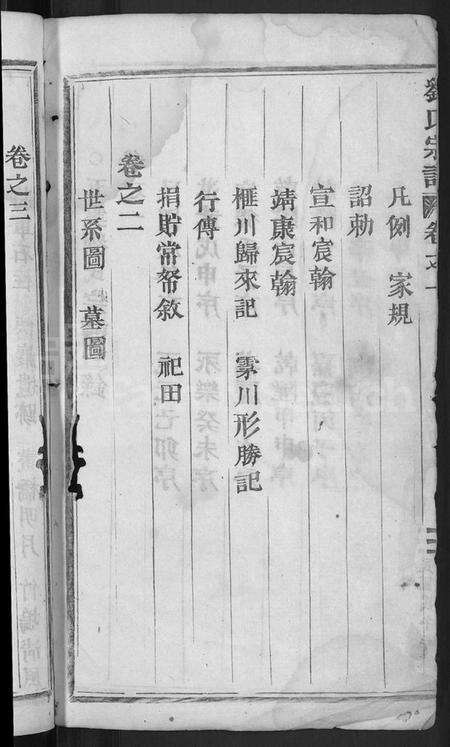 劉氏宗譜 卷之一
凡例 家規
詔勅
宣和宸翰
靖康宸翰
榧川歸來記 霥川形勝記
行傳
捐貯常帑敘 祀田
卷之二
世系圖 墓圖
卷之三